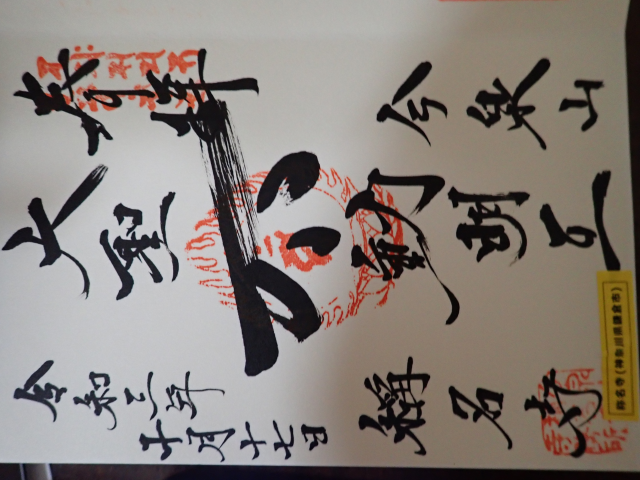 奉拝
今泉山
大聖不動明王
令和三年
十月十七日
稱名寺
称名寺(神奈川県鎌倉市)